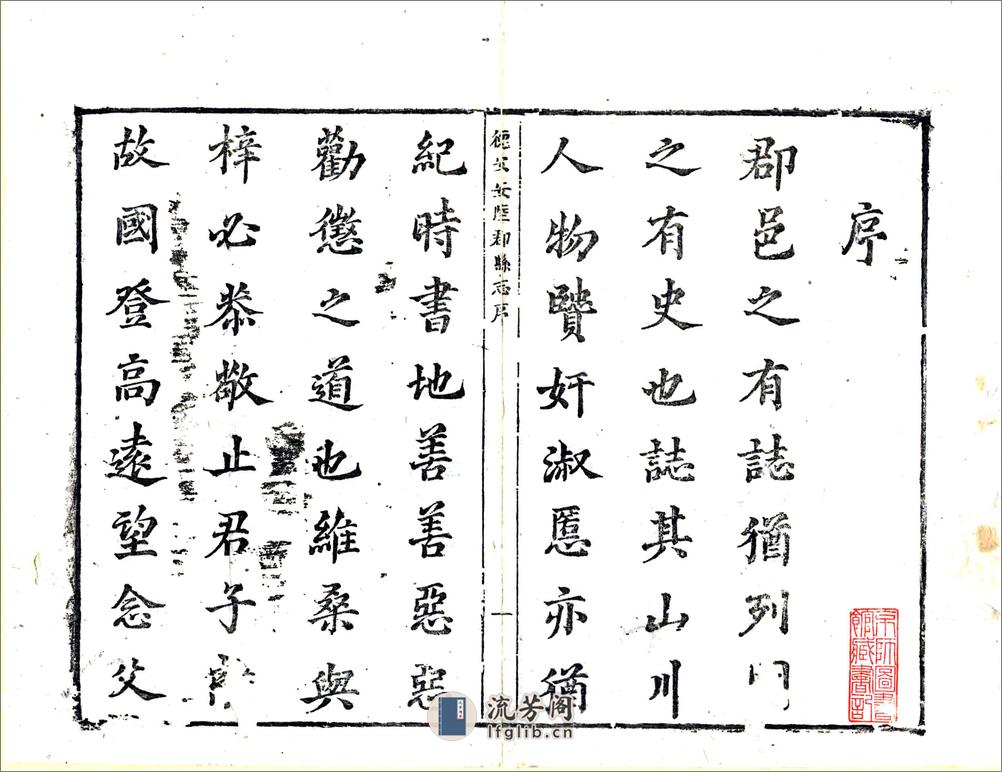 序
郡邑之有誌猶列
之有史也誌其山川
人物贒奸淑慝亦猶
德安安陸郡縣志序
一
紀時書地善善惡惡
勸懲之道也維桑與
梓必恭敬止君子
故國登高遠望念父
京師圖書
館藏書記
流芳阁
lfglib.cn